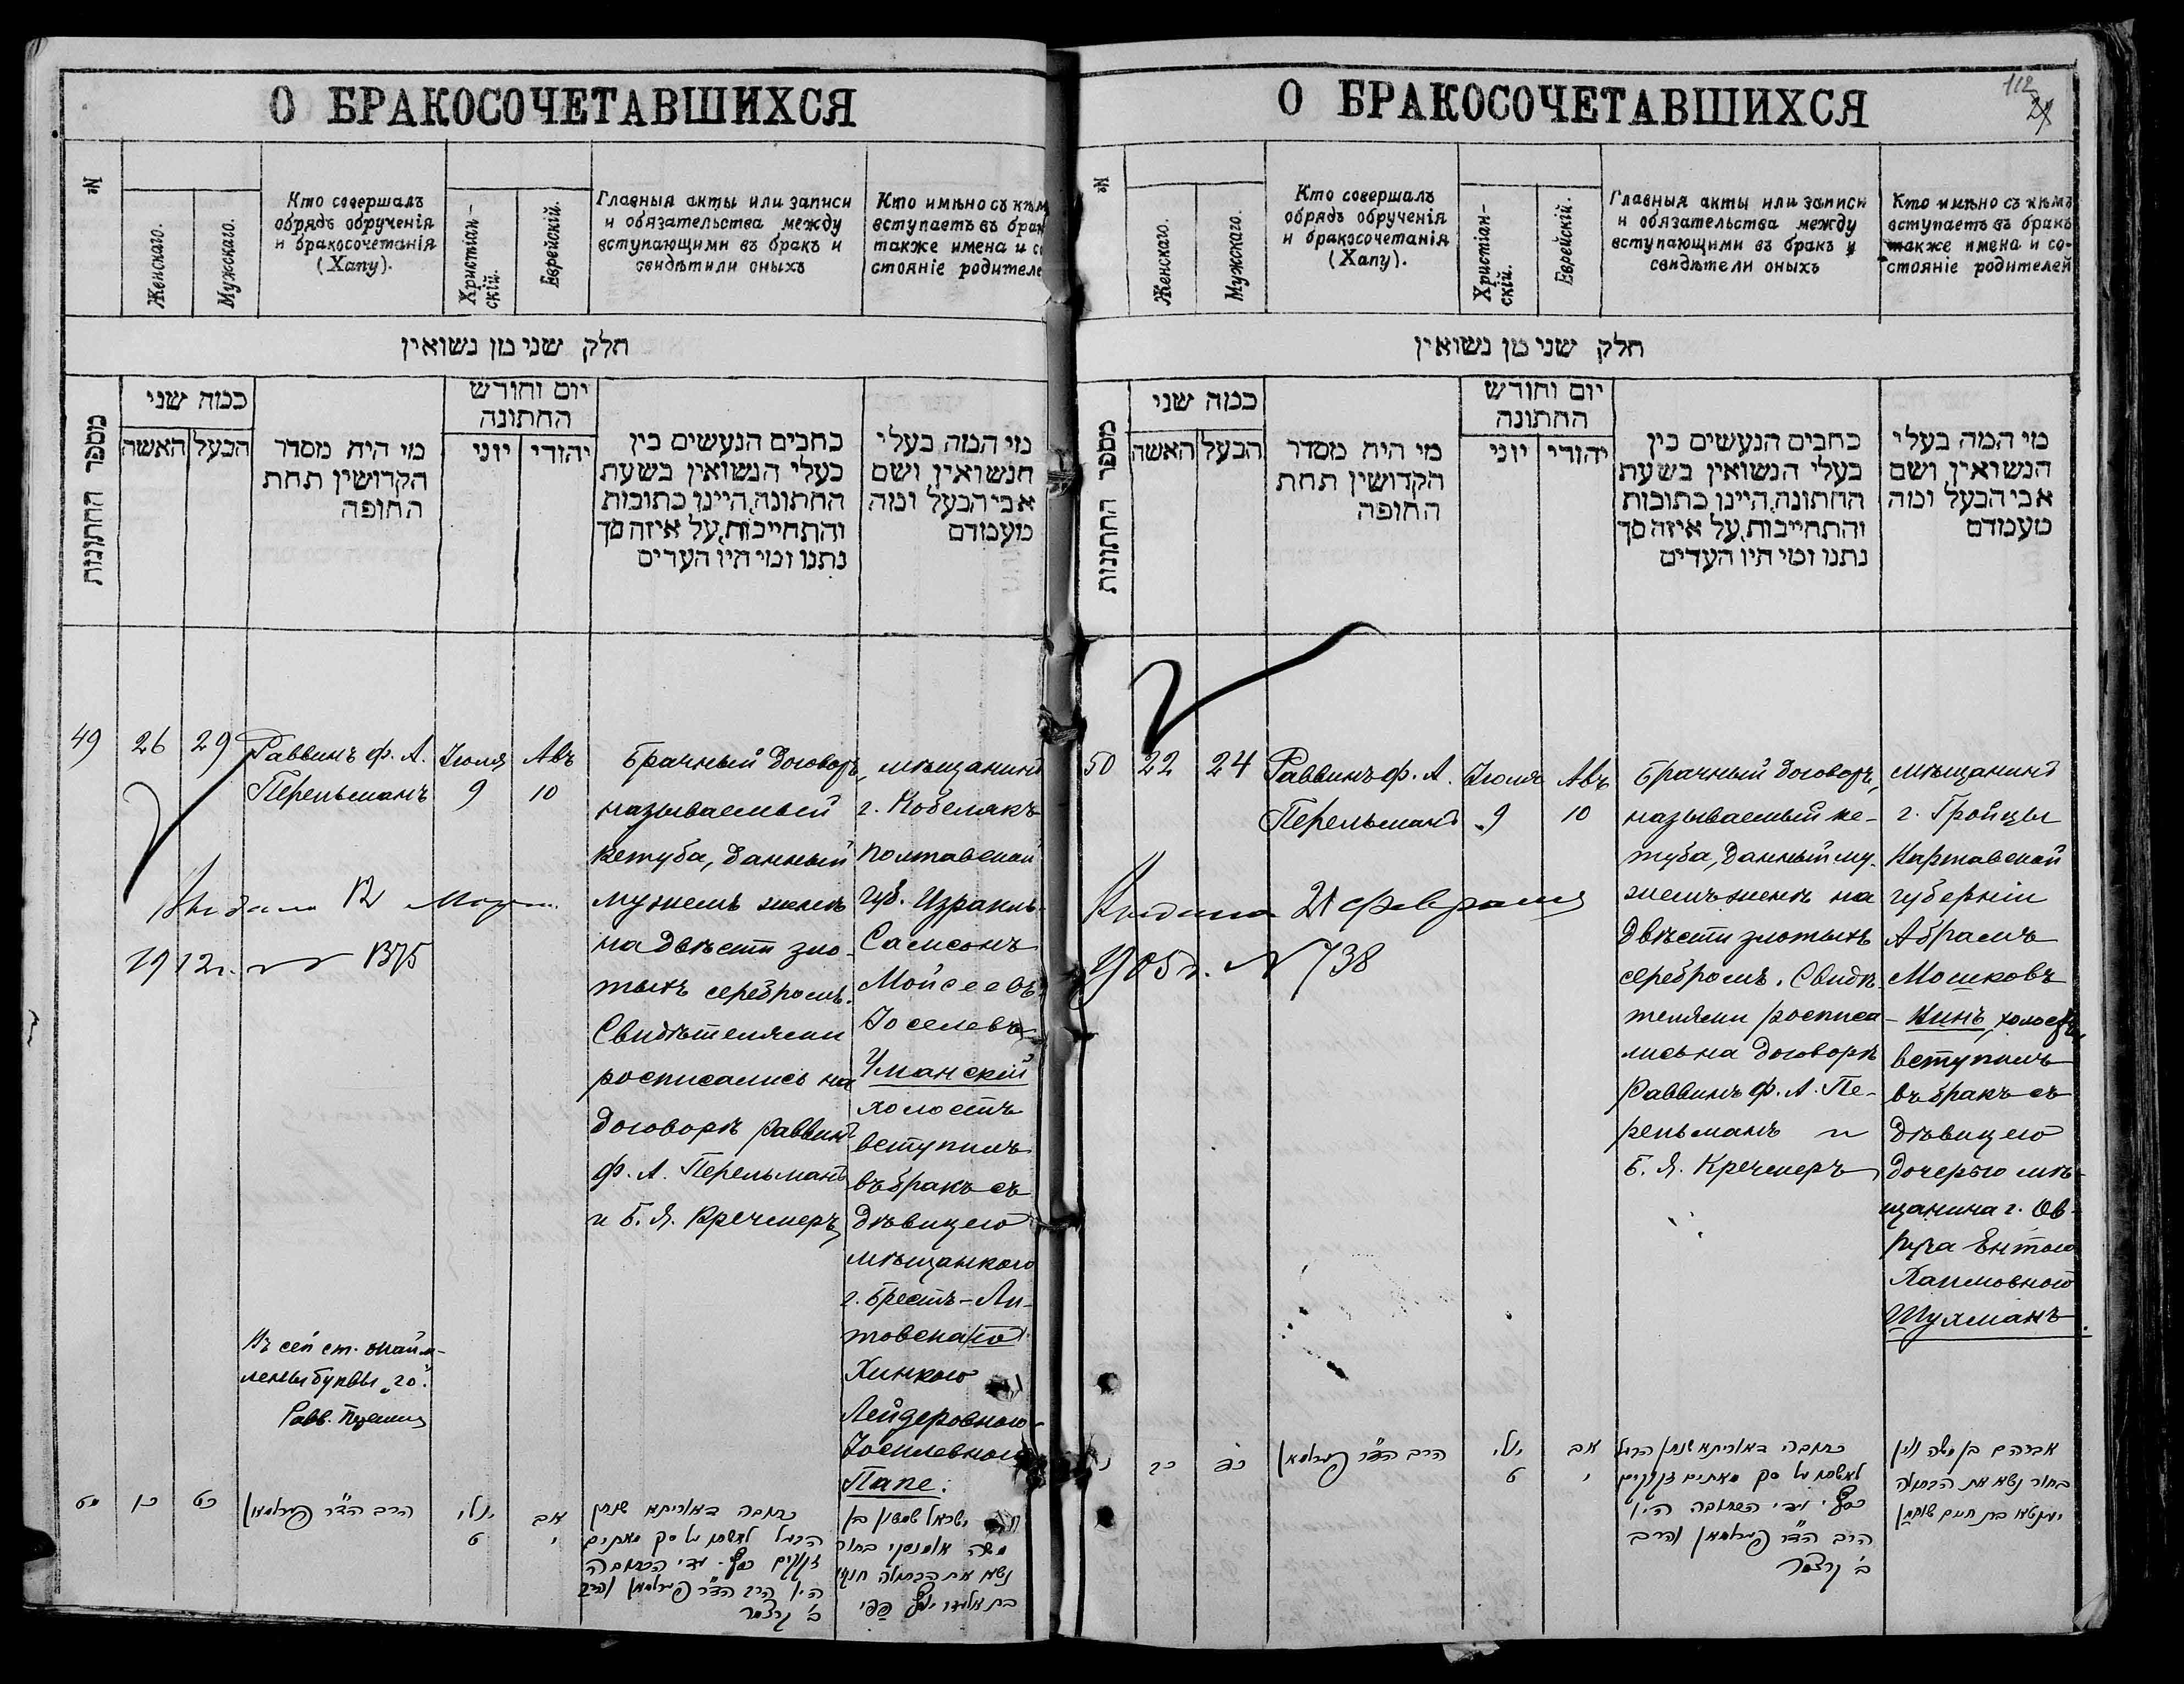 О БРАКОСОЧЕТАВШИХСЯ
№
Женскаго.
Мужскаго.
Кто совершалъ
обрядъ обрученія
и бракосочетанія
(Хапу).
Христіан-
скій.
Еврейскій.
Главныя акты или записи
и обязательства между
вступающими въ бракъ и
свидѣтили оныхъ
Кто имѣно съ кѣм
вступаетъ въ брак
также имена и с
стояніе родителе
חלק שני מן נשואין
מספר החתונות
כמה שני
האשה
הבעל
מי היה מסדר
הקדושין תחת
החופה
יום וחודש
החתונה
יוני
יהודי
כתבים הנעשים בין
בעלי הנשואין בשעת
החתונה, היינו כתובות
והתחייבות, על איזה סך
נתנו ומי היו העדים
מי המה בעלי
הנשואין ושם
אבי הבעל ומה
מעמדם
49
26
29
Раввинъ Ф. А.
Перельманъ
Іюля
9
Авъ
10
Брачный договоръ,
называемый
кетуба, данный
мужемъ женѣ
на двѣсти зло-
тыхъ серебромъ.
Свидѣтелями
росписались на
договорѣ раввинъ
Ф. А. Перельманъ
и Б. Я. Кречмеръ
мѣщанинъ
г. Кобелякъ
Полтавской
губ. Израиль-
Самсонъ
Мойсеевъ
Іоселевъ
Уманскій
холостъ
вступилъ
въ бракъ съ
дѣвицею
мѣщанкою
г. Брестъ-Ли-
товска го
Хинкою
Лейзеровною-
Іосилевною
Папе.
12
1912г.
1375
Въ сей ст.
буквы „го".
Равв.
מט
כו
כט
הרב הד"ר פערלמאן
יולי
ט
אב
י
כתובה דאורייתא שנתן
הבעל לאשתו על סך מאתים
זקוקים כסף. עדי הכתובה
היו הרב הד"ר פערלמאן והרב
ב' קרצמר
ישראל שמשון בן
משה אומנסקי בחור
נשא את הבתולה חינקע
פפי
112
О БРАКОСОЧЕТАВШИХСЯ
№
Женскаго.
Мужскаго.
Кто совершалъ
обрядъ обрученія
и бракосочетанія
(Хапу).
Христіан-
скій.
Еврейскій.
Главныя акты или записи
и обязательства между
вступающими въ бракъ и
свидѣтели оныхъ
Кто имѣно съ кѣмъ
вступаетъ въ бракъ
также имена и со-
стояніе родителей
חלק שני מן נשואין
מספר החתונות
כמה שני
האשה
הבעל
מי היה מסדר
הקדושין תחת
החופה
יום וחודש
החתונה
יוני
יהודי
כתבים הנעשים בין
בעלי הנשואין בשעת
החתונה, היינו כתובות
והתחייבות, על איזה סך
נתנו ומי היו העדים
מי המה בעלי
הנשואין ושם
אבי הבעל ומה
מעמדם
50
22
24
Раввинъ Ф. А.
Перельманъ
Іюля
9
Авъ
10
Брачный договоръ,
называемый ке-
туба, данный му-
жемъ женѣ на
двѣсти злотыхъ
серебромъ. Свидѣ-
телями росписа-
лись на договорѣ
раввинъ Ф. А. Пе-
рельманъ и
Б. Я. Кречмеръ
мѣщанинъ
г. Гройцы
Варшавской
губерніи
Абрамъ
Мошковъ
холостъ,
вступилъ
въ бракъ съ
дѣвицею
дочерью мѣ-
щанина г. Ов-
руча Ентою
Хаимовною
Шулманъ.
21 февраля
905г. № 738
נ
כב
כד
הרב הד"ר פערלמאן
יולי
ט
אב
י
כתובה דאורייתא שנתן הבעל
לאשתו על סך מאתים זקוקים
כסף. ועדי הכתובה היו
הרב הד"ר פערלמאן והרב
ב' קרצמר
אברהם בן משה
בחור נשא את הבתולה
יענטא בת חיים שולמן